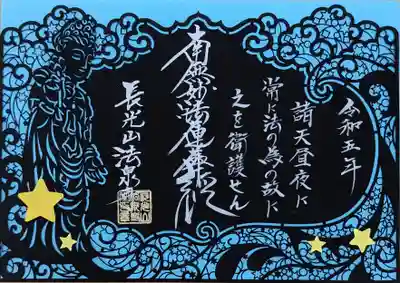 令和五年
諸天昼夜に
常に法の為の故に
之を衛護せん
南無妙法蓮華経
長光山